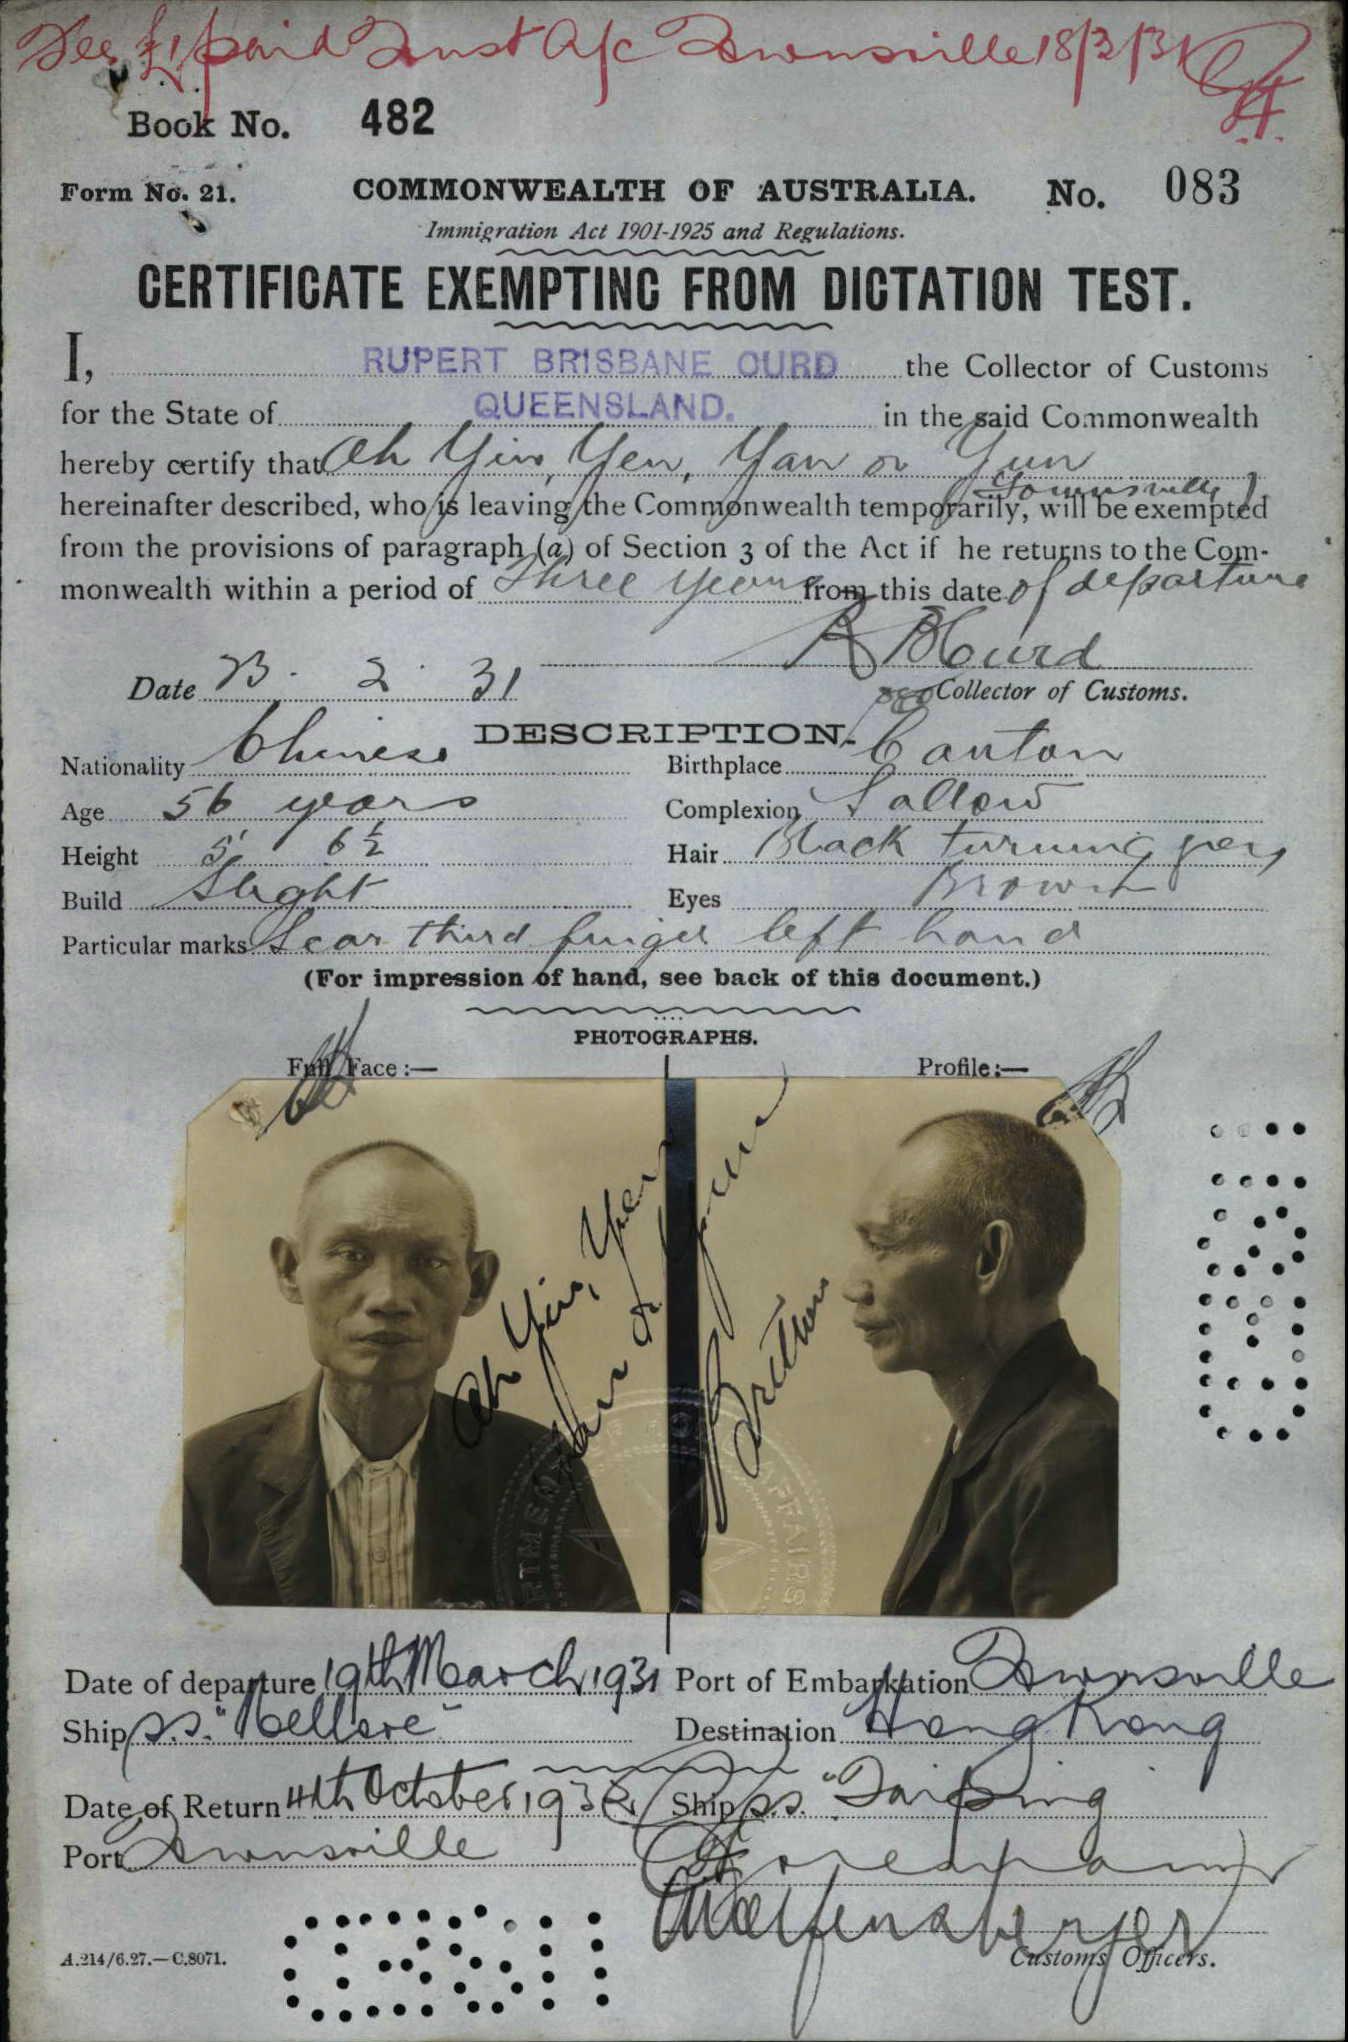 Fee £1 paid Trust A/c Townsville 18/3/31
Book No. 482
Form No. 21. COMMONWEALTH OF AUSTRALIA. No. 083
Immigration Act 1901-1925 and Regulations.
CERTIFICATE EXEMPTING FROM DICTATION TEST.
I, RUPERT BRISBANE CURD the Collector of Customs
for the State of QUEENSLAND. in the said Commonwealth
hereby certify that Ah Yin, Yen, Yan or Yun
(Townsville)
hereinafter described, who is leaving the Commonwealth temporarily, will be exempted
from the provisions of paragraph (a) of Section 3 of the Act if he returns to the Com-
monwealth within a period of Three years from this date of departure
R B Curd
Date 23. 2. 31
Collector of Customs.
DESCRIPTION.
Nationality Chinese Birthplace Canton
Age 56 years Complexion Sallow
Height 5' 6½ Hair Black turning grey
Build Slight Eyes Brown
Particular marks Scar third finger left hand
(For impression of hand, see back of this document.)
PHOTOGRAPHS.
Full Face :— Profile :—
Ah Yin, Yen
Yan or Yun
AFFAIRS
Date of departure 19th March 1931 Port of Embarkation Townsville
Ship s.s. "Nellore" Destination Hong Kong
Date of Return 4th October 1932 Ship s.s. "Taiping
Port Townsville
A.214/6.27.—C.8071.
Customs Officers.